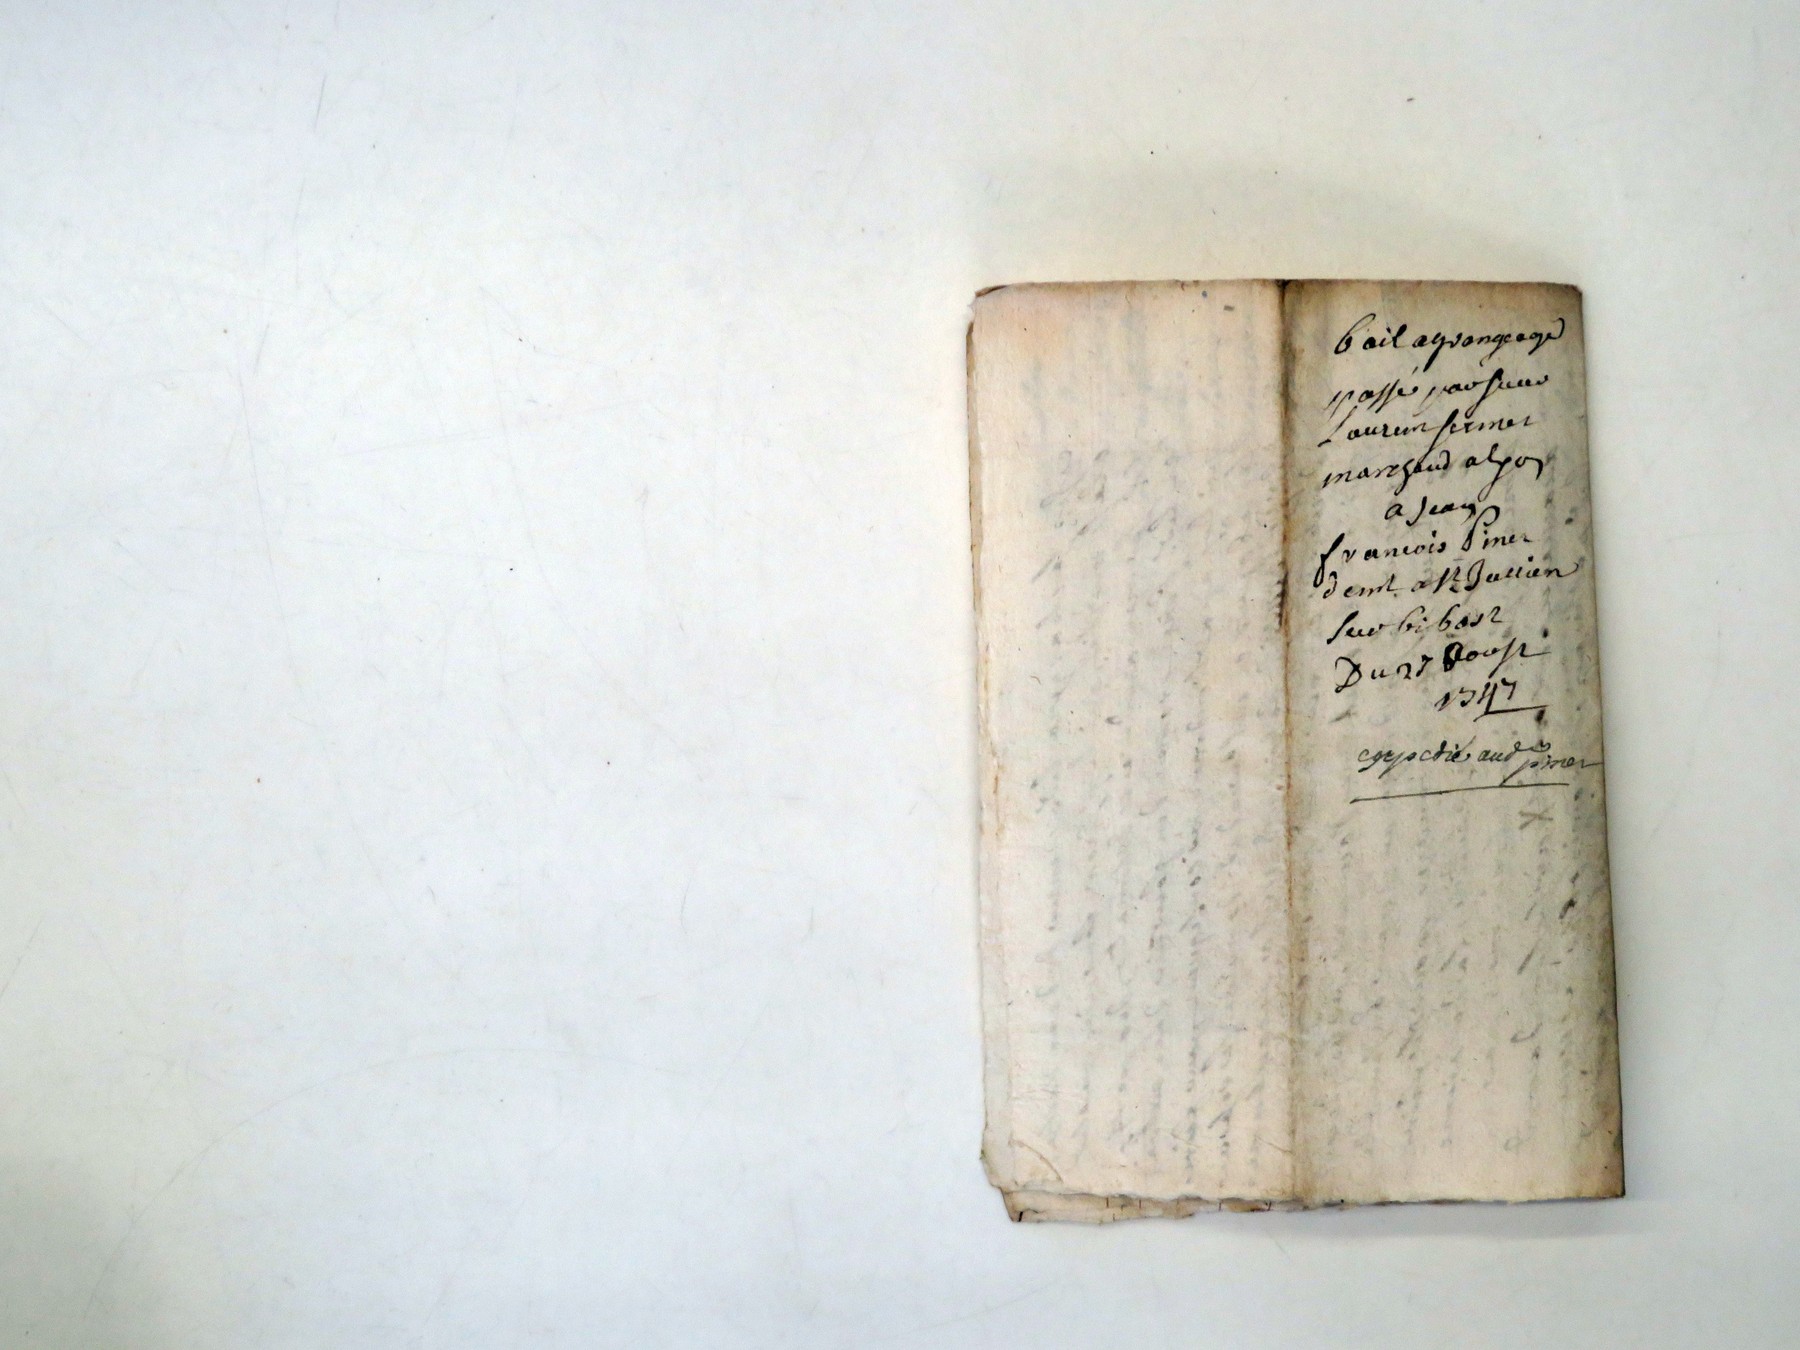 bail agrangeage
passé par sieur
Laurent fermer
marchand alyon
a Jean
francois Piner
demt a st Jullien
sur bibost
Du 27 Aoust
1747
expedié aud piner